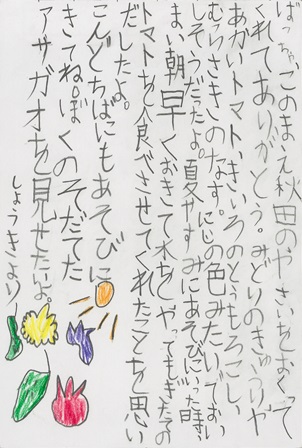 ばっちゃ、このまえ秋田のやさいをおくって
くれてありがとう。みどりのきゅうりや
あかいトマト、きいろのとうもろこし、
むらさきのなす。にじの色みたいでおい
しそうだったよ。夏やすみにあそびにいった時、
まい朝早くおきて水をやってもぎたての
トマトを食べさせてくれたことを思い
だしたよ。
こんどちばにもあそびに
きてね。ぼくのそだてた
アサガオを見せたいよ。
しょうきより